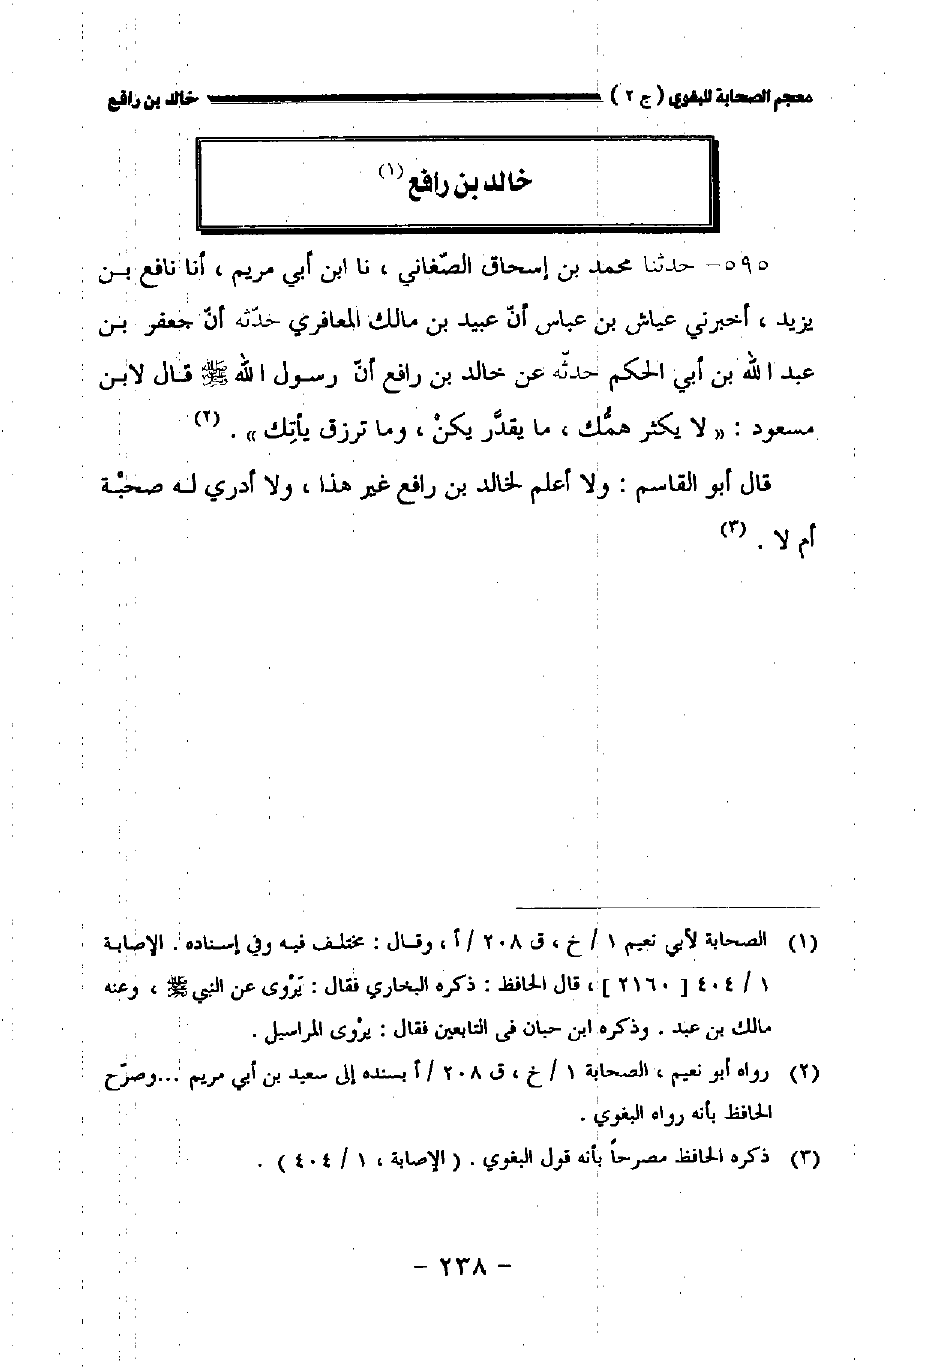 معجم الصحابة للبغوي ( ج ٢ ) خالد بن رافع
خالد بن رافع (١)
٥٩٥- حدثنا محمد بن إسحاق الصّغاني ، نا ابن أبي مريم ، أنا نافع بن
يزيد ، أخبرني عياش بن عباس أنّ عبيد بن مالك المعافري حدّثه أنّ جعفر بن
عبد الله بن أبي الحكم حدثّه عن خالد بن رافع أنّ رسول الله ﷺ قال لابن
مسعود : « لا يكثر همُّك ، ما يقدَّر يكنْ ، وما ترزق يأتِك » . (٢)
قال أبو القاسم : ولا أعلم لخالد بن رافع غير هذا ، ولا أدري له صحبْة
أم لا . (٣)
(١) الصحابة لأبي نعيم ١ / خ ، ق ٢٠٨ / أ ، وقال : مختلف فيه وفي إسناده . الإصابة
١ / ٤٠٤ [ ٢١٦٠ ] ، قال الحافظ : ذكره البخاري فقال : يَرْوى عن النبي ﷺ ، وعنه
مالك بن عبد . وذكره ابن حبان فى التابعين فقال : يرْوى المراسيل .
(٢) رواه أبو نعيم ، الصحابة ١ / خ ، ق ٢٠٨ / أ بسنده إلى سعيد بن أبي مريم ...وصرّح
الحافظ بأنه رواه البغوي .
(٣) ذكره الحافظ مصرحاً بأنه قول البغوي . ( الإصابة ، ١ / ٤٠٤ ) .
- ٢٣٨ -